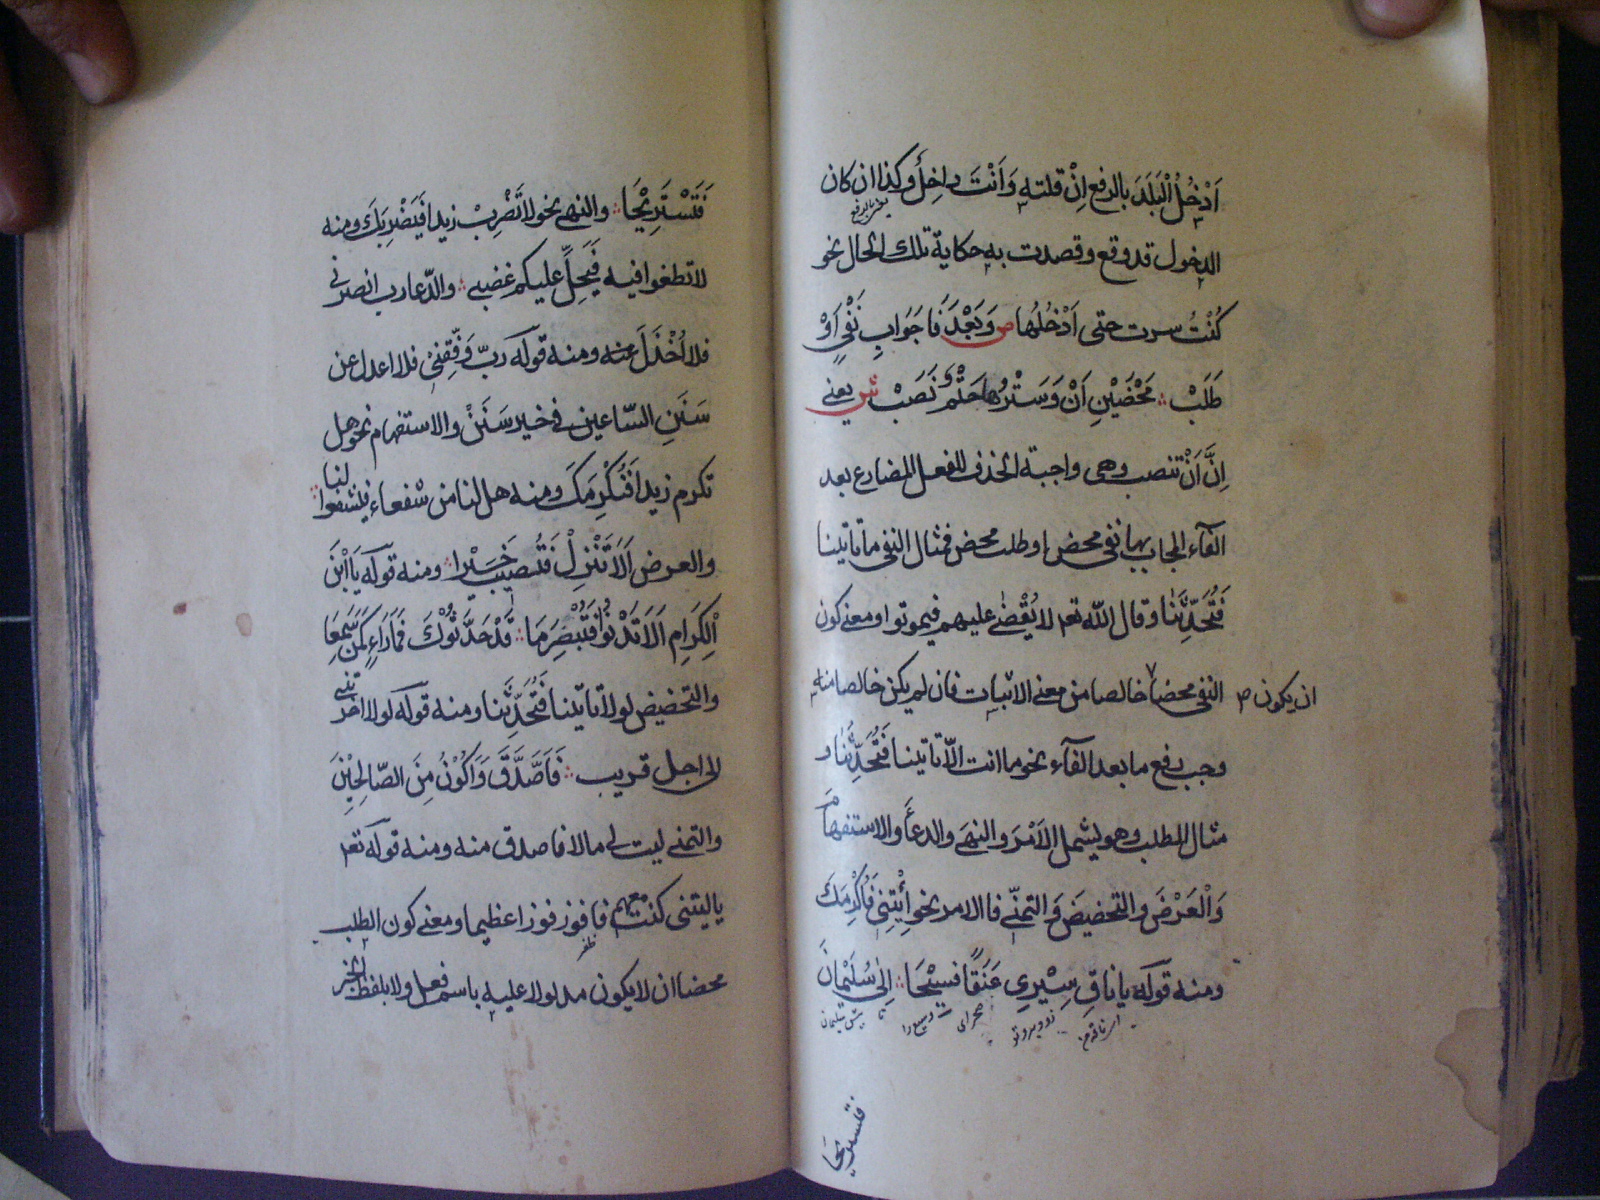 اَدْخُلُ الْبَلَدَ بالرفع اِنْ قلته وَاَنْتَ داخِلٌ وكذا ان كان
الدخول قد وقع وقصدت به حكاية تلك الحال نحو
كُنْتُ سرت حتى اَدْخُلُها ص وَبَعْدَ فَا جَوَابِ نَفْيٍ اَوْ
طَلَبْ مَحْضَيْنِ اَنْ وَسَتْرُها حَتْمٌ نَصَبْ ش يعنى
اِنَّ اَنْ تنصب وهى واجبة الحذف الفعل المضارع بعد
الفآء المجاب بها نفى محض او طلب محض فمثال النفى ما تاتينا
فَتُحَدِّثَنَا وقال الله تعا لا يُقْضٰى عليهم فيموتوا ومعنى كون
النفى محضا خالصا من معنى الاثبات فان لم يكن خالصا منه
ان يكون ص
وجب رفع ما بعد الفآء نحو ما انت الّا تاتينا فَتُحَدِّثُنَا و
مثال الطلب وهو يشمل الاَمْرَ والنهىَ والدعآَ والاستفهامَ
وَالْعَرْضَ والتحضيضَ والتمنّى فالامر نحو اِئْتِنِى فَاُكْرِمَكَ
ومنه قوله يا ناقَ سِيْرِي عَنَقًا فَسِيْحَا اِلٰى سُلَيْمَانَ
فتستريحا
فَنَسْتَرِيْحَا والنهى نحو لا تَضْرِبْ زيدا فَيَضْرِبَكَ ومنه
لا تطغوا فيه فَيَحِلَّ عليكم غضبى والدّعا رب انصرنى
فلا اُخْذَلَ ومنه قوله ربّ وَفِّقْنِىْ فلا اعدل عن
سَنَنِ السّاعين فى خير سَنَنْ والاستفهام نحو هل
تكرم زيدا فَيُكْرِمَكَ ومنه هل لنا من شفعاء فيشفعوا لنا
والعرض اَلَا تَنْزِلُ فَتُصِيْبَ خَيْرا ومنه قوله يَا ابْنَ
الْكِرَامِ اَلَا تَدْنُوْ فَتُبْصِرَ مَا قَدْ حَدَّثُوْكَ فَمَا رَاءٍ كَمَنْ سَمِعَا
والتحضيض لولا تاتينا فَتُحَدِّثَنا ومنه قوله لولا اخرتنى
الى اجل قريب فَاَصَّدَّقَ وَاَكُوْنَ مِنَ الصّالِحِيْنَ
والتمنى ليت لى مالا فاصدق منه ومنه قوله تعا
يا ليتنى كنت معهم فافوز فوزا عظيما ومعنى كون الطلب
محضا ان لا يكون مدلولا عليه باسم فعل ولا بلفظ الخبر